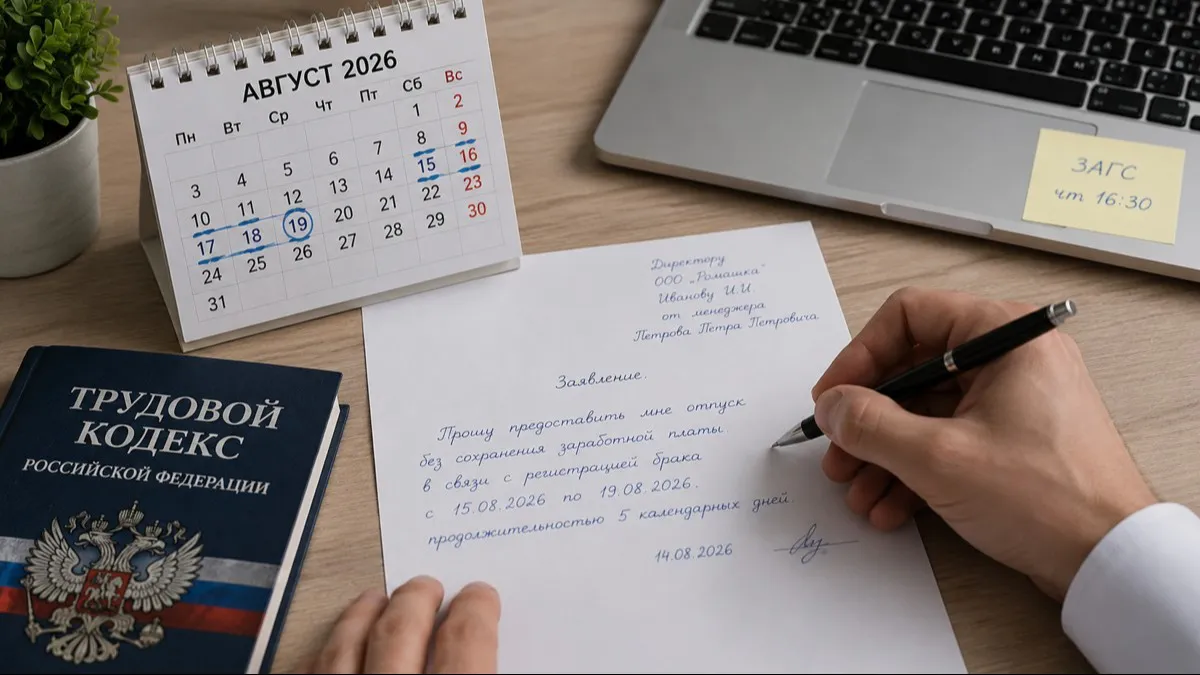 АВГУСТ 2026
Пн Вт Ср Чт Пт Сб Вс
1 2
3 4 5 6 7 8 9
10 11 12 13 14 15 16
17 18 19 20 21 22 23
24 25 26 27 28 29 30
31
ЗАГС
чт 16:30
Директору
ООО „Ромашка“
Иванову И.И.
от менеджера
Петрова Петра Петровича
Заявление.
Прошу предоставить мне отпуск
без сохранения заработной платы
в связи с регистрацией брака
с 15.08.2026 по 19.08.2026.
продолжительностью 5 календарных дней.
14.08.2026
ТРУДОВОЙ
КОДЕКС
РОССИЙСКОЙ ФЕДЕРАЦИИ